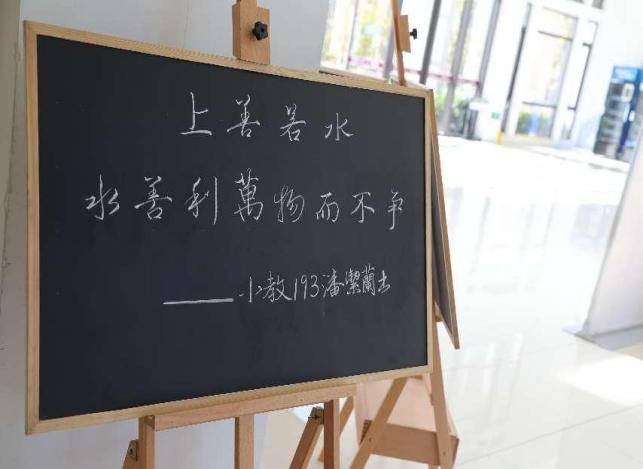 上善若水
水善利萬物而不争
——小教193潘潔蘭书